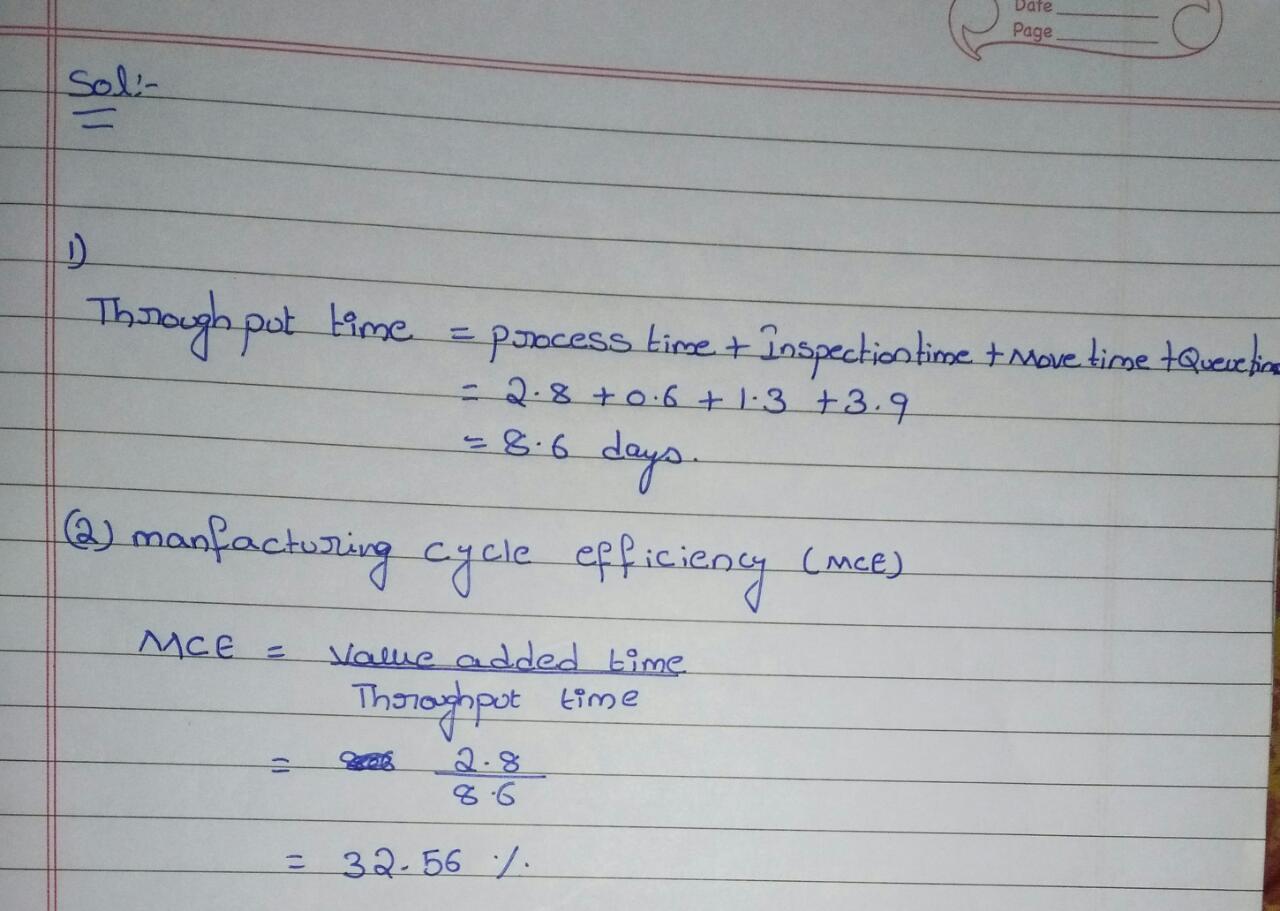 Date
Page
Sol:-
1)
Throughput time = process time + Inspection time + Move time + Queue time
= 2.8 + 0.6 + 1.3 + 3.9
= 8.6 days.
(2) manfacturing cycle efficiency (MCE)
MCE = Value added time
Throughput time
= 2.8
8.6
= 32.56 %.